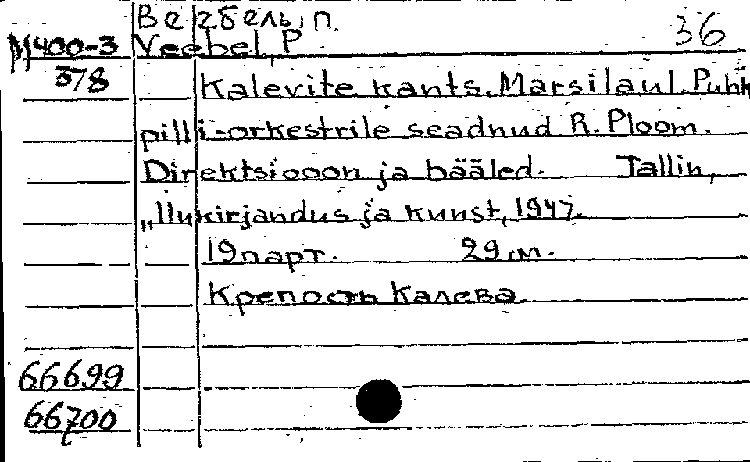 Веэбель, П.
36
М400-3 Veebel, P
378
Kalevite kants. Marsilaul. Puhk
pilli-orkestrile seadnud R. Ploom.
Direktsiooon ja bääled. Tallin,
„Ilukirjandus ja kunst, 1947.
19 парт. 29 см.
Крепость Калева
66699
66700